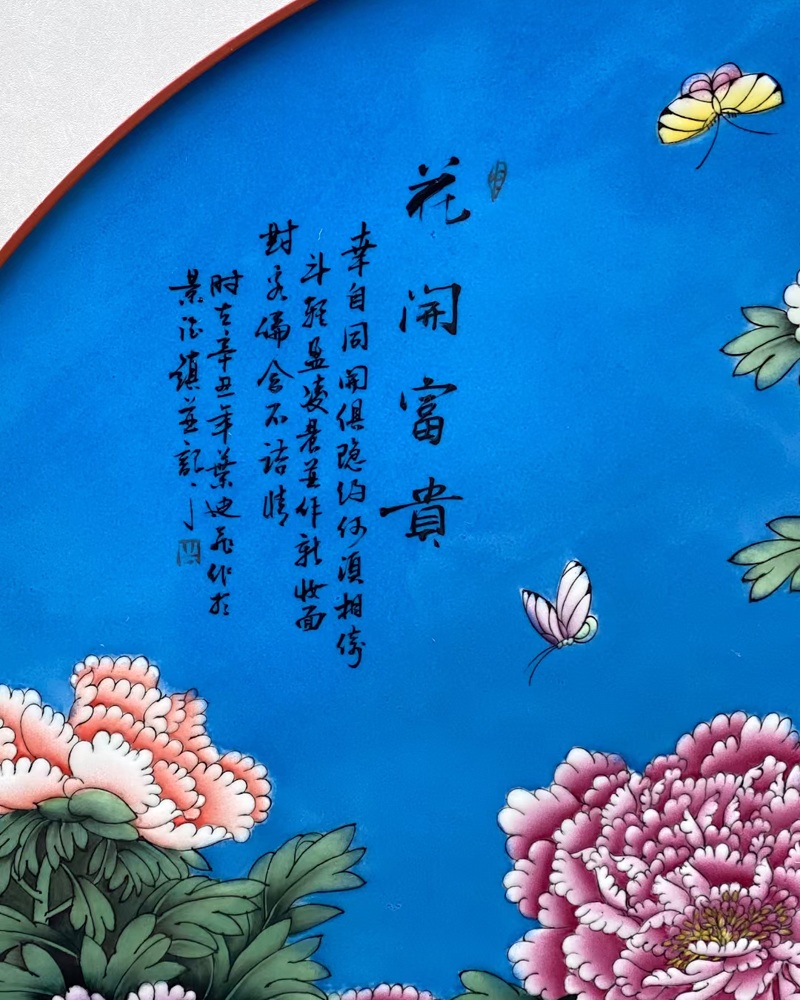 花開富貴
幸自同開俱隐约何須相倚
斗輕盈凌晨並作新妝面
對客偏含不語情
时在辛丑年葉作於
景德鎮並記